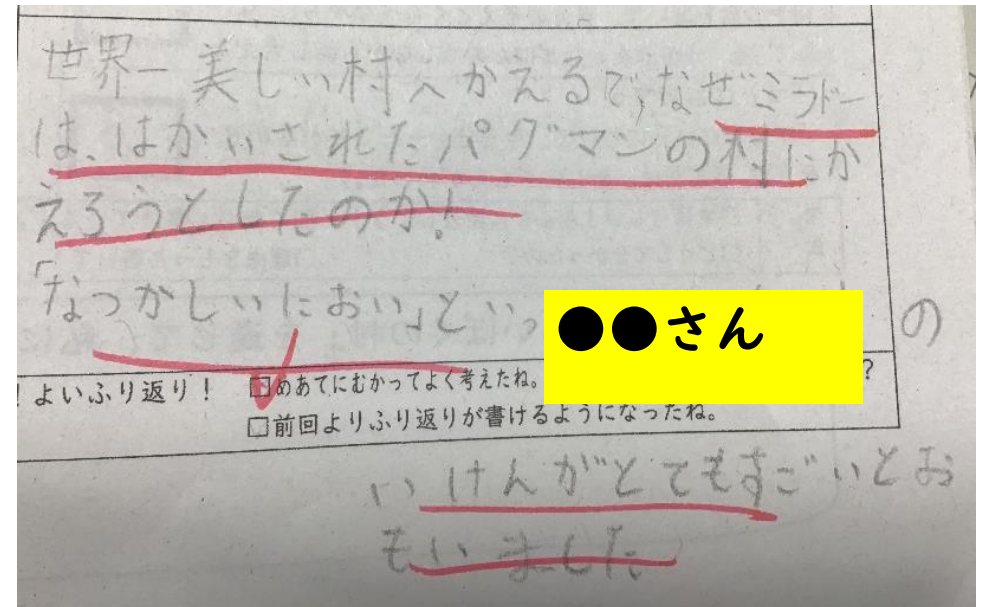 世界一美しい村へかえるで,なぜミラドー
は、はかいされたパグマンの村にか
えろうとしたのか!
「なつかしいにおい」といっ ●●さん の
!よいふり返り! □めあてにむかってよく考えたね。 ?
□前回よりふり返りが書けるようになったね。
いけんがとてもすごいとお
もいました